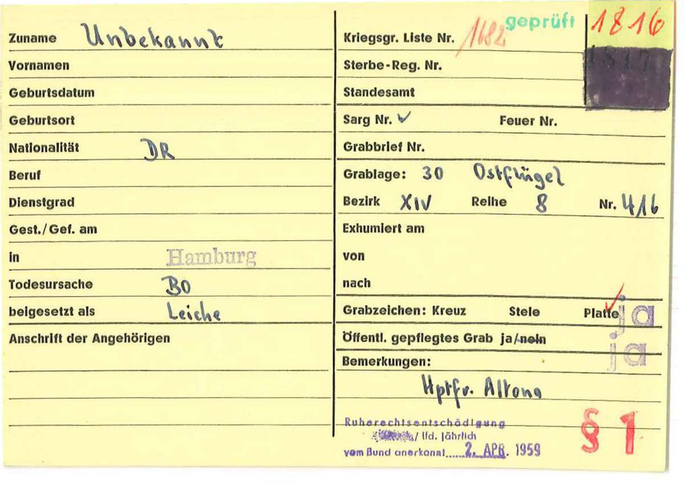 geprüft
1816
Zuname Unbekannt
Kriegsgr. Liste Nr. 1682
Vornamen
Sterbe-Reg. Nr.
Geburtsdatum
Standesamt
Geburtsort
Sarg Nr. Feuer Nr.
Nationalität DR
Grabbrief Nr.
Beruf
Grablage: 30 Ostflügel
Dienstgrad
Bezirk XIV Reihe 8 Nr. 416
Gest./Gef. am
Exhumiert am
in Hamburg
von
Todesursache BO
nach
beigesetzt als Leiche
Grabzeichen: Kreuz Stele Platte ja
Anschrift der Angehörigen
Öffentl. gepflegtes Grab ja/nein ja
Bemerkungen:
Hptfr. Altona
Ruherechtsentschädigung
/ lfd. jährlich
vom Bund anerkannt 2. APR. 1959
§ 1